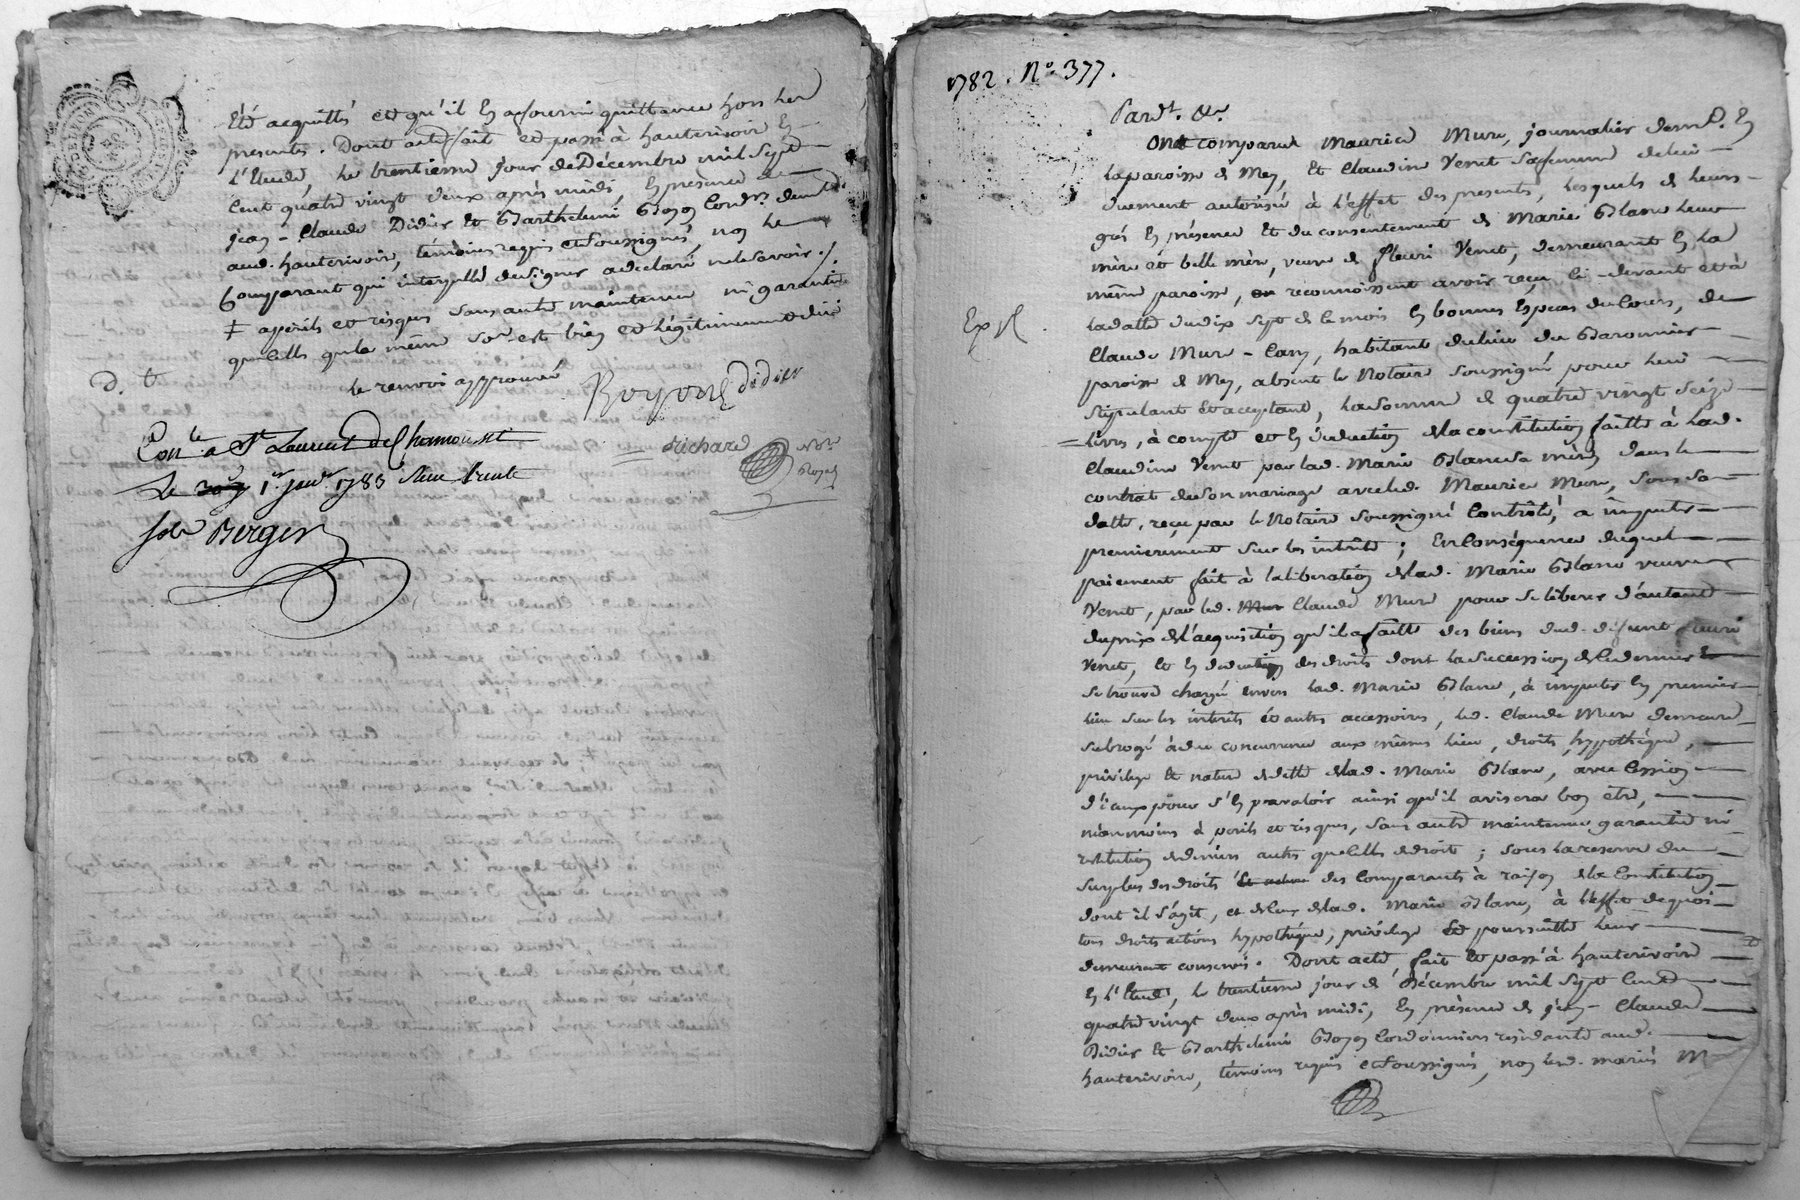 Eté acquittés et qu'il en a fourni quittance hors les
presentes. Dont acte fait et passé à hauterivoir En
l'Etude, le trentieme jour de Décembre mil Sept
Cent quatre vingt deux après midi, En presence de
jean-Claude Didier et Barthelemi Boyon Cordrs. demts.
aud. hauterivoir, témoins requis et soussignés, non le
Comparant qui interpellé de signer a déclaré ne le savoir ./.
‡ a perils et risques sans autre maintenue ni garantie
que celle que la même so.e est bien et légitimement düe
le renvoi approuvé
Boyon didier
d. t.
Richard nore
Royal
Con.lé a St Laurent de Chamousset
Le 1er janr. 1783 Reçu trente
sols Berger
1782. No. 377.
Pardt. &a.
Ont comparu Maurice Mure, journalier demt. En
la paroisse de Mey, Et Claudine Venet sa femme de lui
duement autorisée à l'effet des presentes, lesquels de leurs
grés En présence Et du consentement de Marie Blanc leur
mère et belle mère, veuve de fleuri Venet, demeurant En la
même paroisse, reconnoissent avoir reçu ci-devant et à
la datte du dix sept de ce mois En bonnes Especes du Cours, de
Claude Mure-Cary, habitant du lieu du Baronnier
Exp
paroisse de Mey, absent le Notaire soussigné pour lui
stipulant et acceptant, la somme de quatre vingt seize
livres, à compte et En déduction de la constitution faitte à lad.
Claudine Venet par lad. Marie Blanc sa mère dans le
contrat de son mariage avec led. Maurice Mure, sous sa
datte, reçu par le Notaire soussigné Contrôlé, a imputer
premierement sur les intérêts; En Conséquence duquel
paiement fait à la liberation de lad. Marie Blanc veuve
Venet, par led. Claude Mure pour se liberer d'autant
du prix de l'acquisition qu'il a faitte des biens dud. défunt fleuri
Venet, et En déduction des droits dont la succession de ce dernier
se trouve chargée envers lad. Marie Blanc, à imputer En premier
lieu sur les interêts et autres accessoires, led. Claude Mure demeure
subrogé à due concurrence aux mêmes lieu, droits, hypothèque,
privilege Et nature de dette de lad. Marie Blanc, avec Cession
d'iceux pour s'En prévaloir ainsi qu'il avisera bon etre,
néanmoins à perils et risques, sans autre maintenue garantie ni
restitution de deniers autre que celle de droit; sous la reserve du
surplus des droits des Comparants à raison de la Constitution
dont il s'agit, et de ceux de lad. Marie Blanc, à l'effet de quoi
tous droits actions hypothèque, privilege et poursuitte leur
demeurent conservés. Dont acte fait et passé à hauterivoire
En l'Etude, le trentieme jour de Décembre mil Sept Cent
quatre vingt deux après midi, En présence de jean-Claude
Didier Et Barthelemi Boyon Cordonniers résidants aud.
hauterivoire, témoins requis et soussignés, non lesd. mariés M